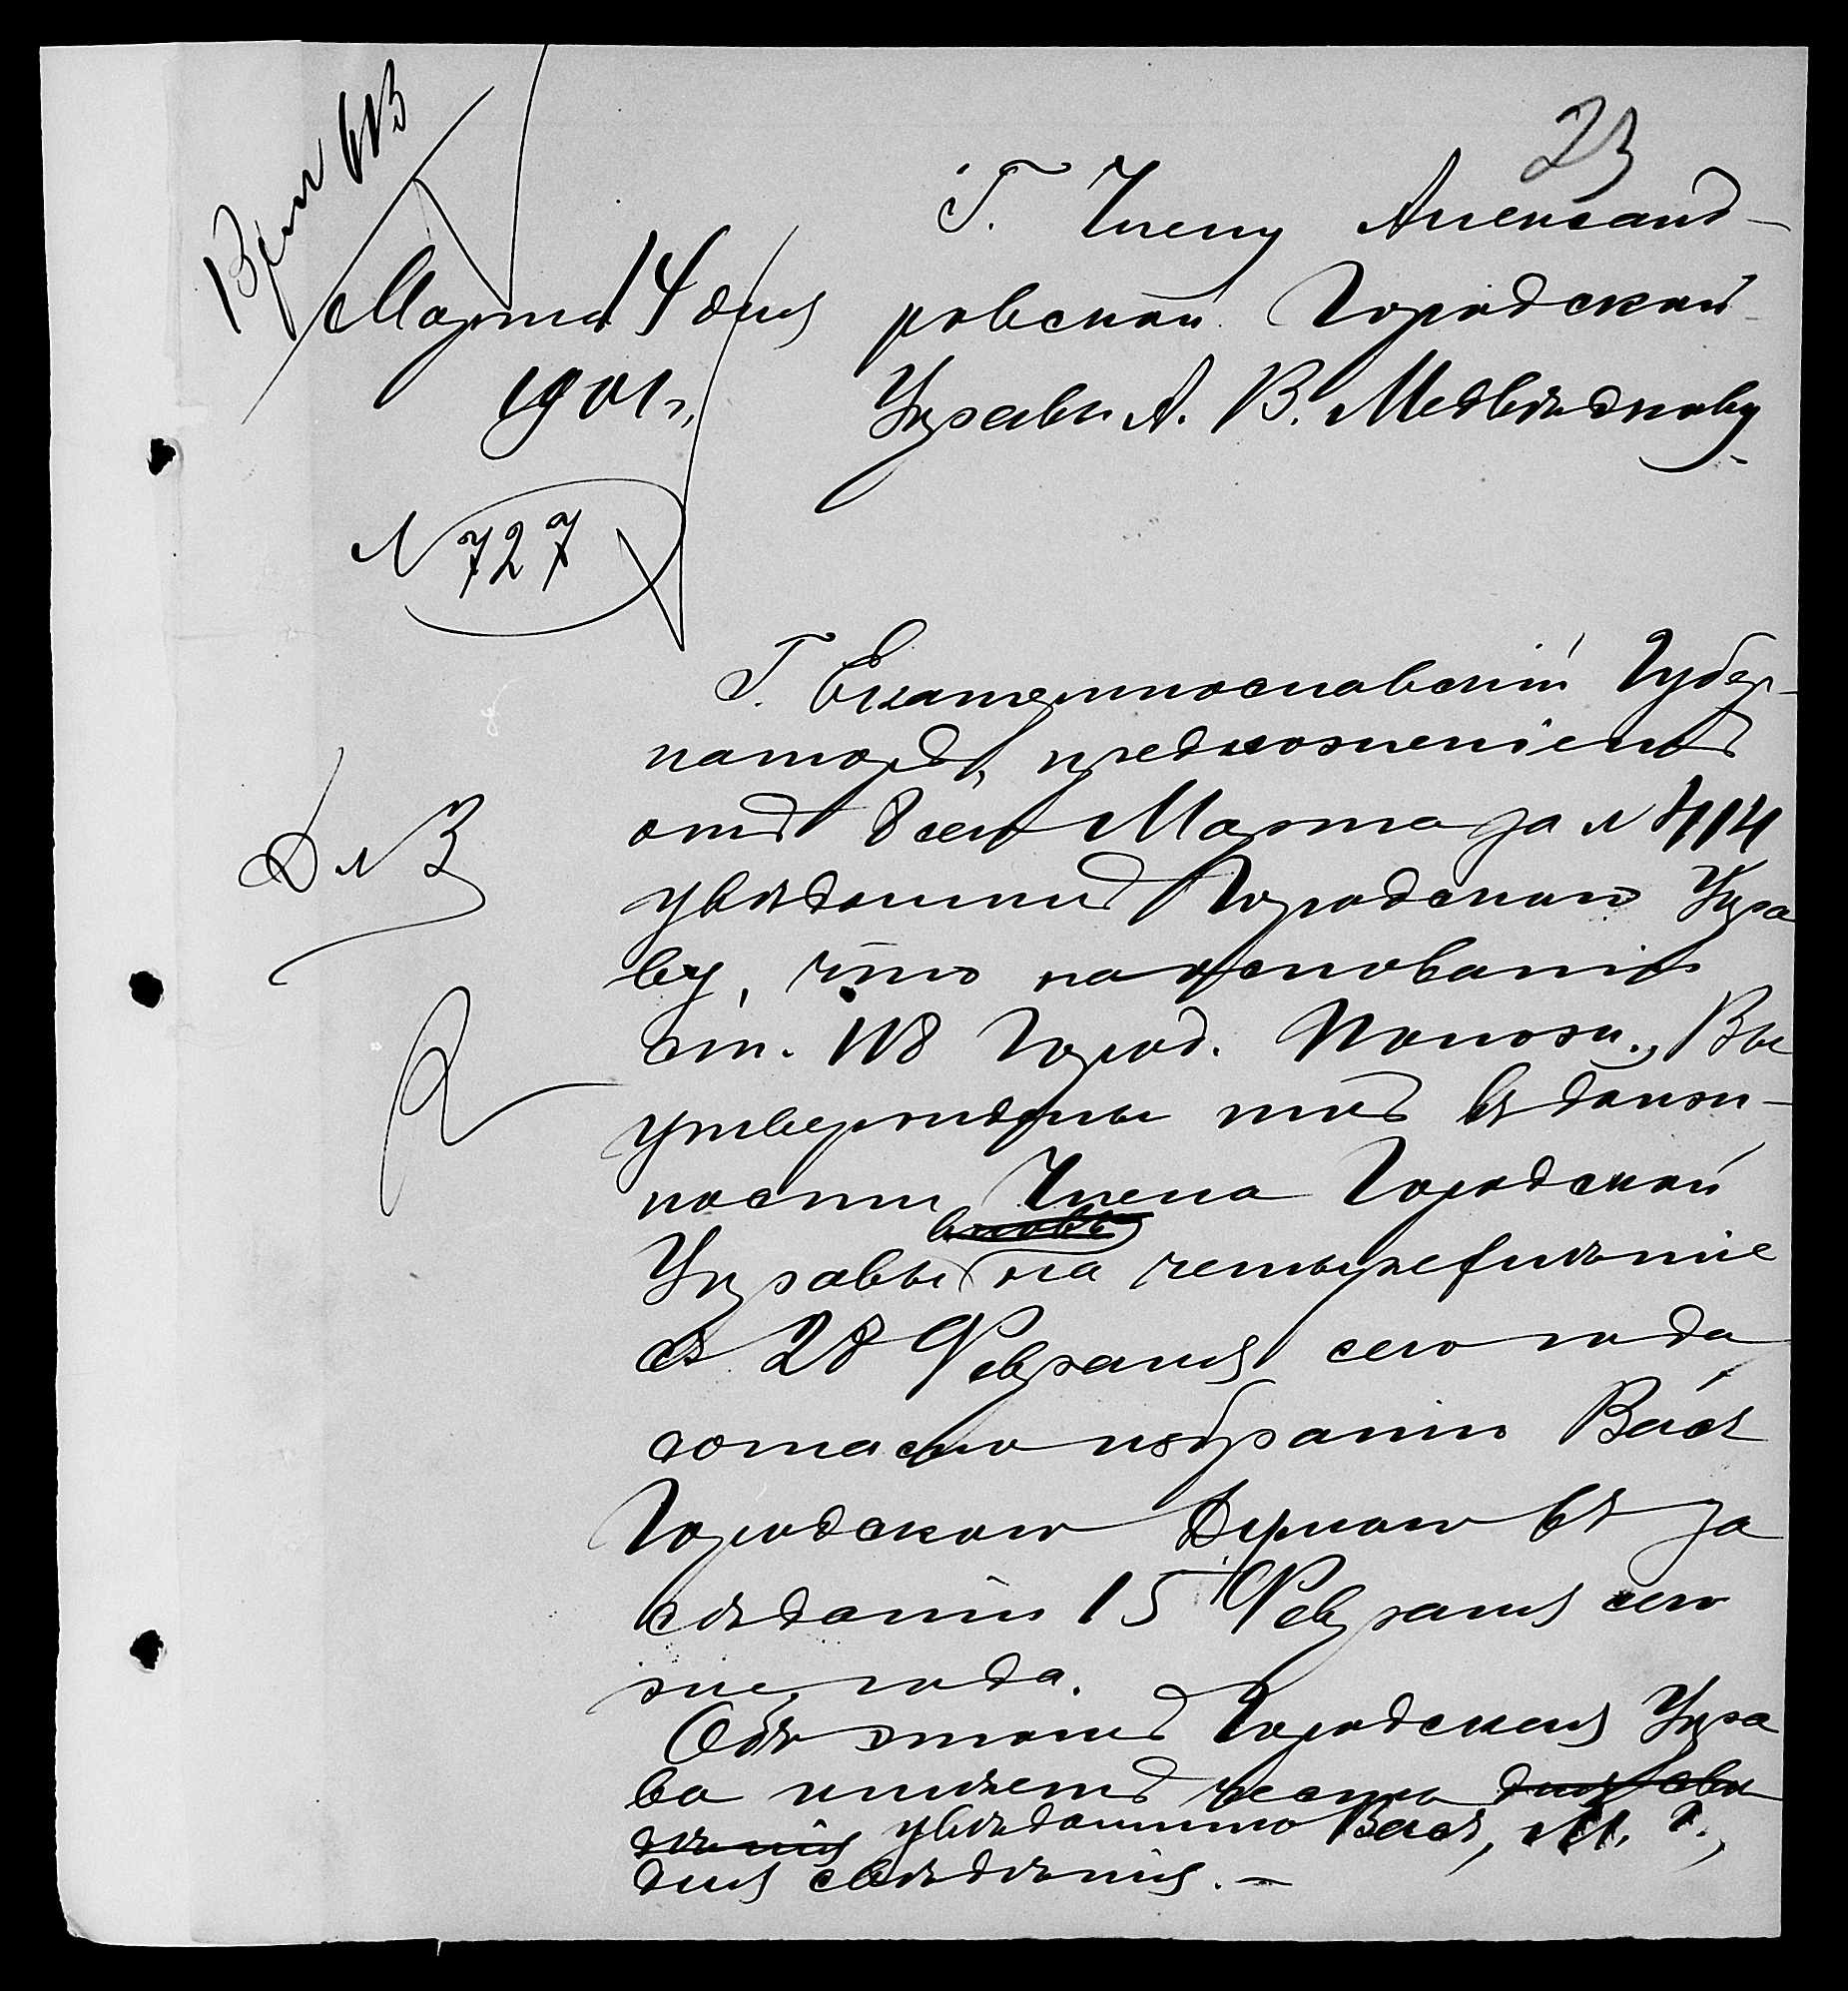 23
Марта 14 дня
1901 г.
N 727
Г. Члену Александ-
ровской Городской
Управы А. В. Медвѣдкову
Д N 3
Г. Екатеринославскій Губер-
наторъ, предложеніемъ
отъ 8 сего Марта за N 414
увѣдомилъ Городскую Упра
ву, что на основаніи
ст. 118 Город. Полож., Вы
утверждены имъ въ долж-
ности Члена Городской
вновь
Управы на четырехлѣтіе
съ 28 Февраля сего года,
согласно избранію Васъ
Городскою Думою въ за
сѣданіи 15 Февраля сего
же года.
Объ этомъ Городская Упра
ва имѣетъ честь для свѣ
дѣнія увѣдомить Васъ, М. Г.,
для свѣдѣнія. –